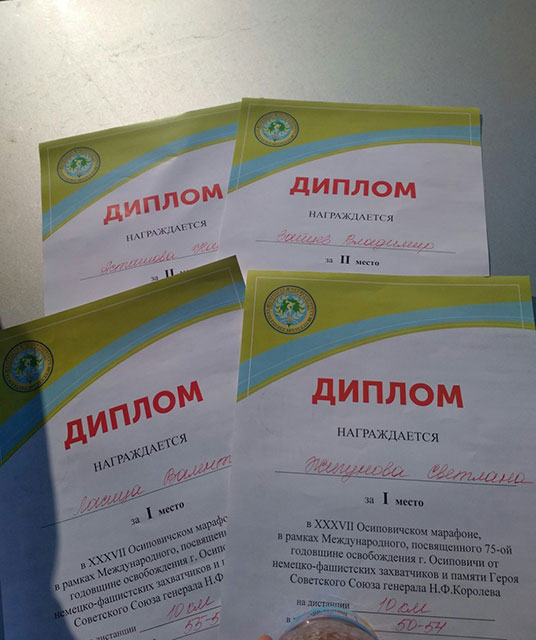 ДИПЛОМ
НАГРАЖДАЕТСЯ
за II место
ДИПЛОМ
НАГРАЖДАЕТСЯ
Зайцев Владимир
за II место
ДИПЛОМ
НАГРАЖДАЕТСЯ
за I место
в XXXVII Осиповичском марафоне,
в рамках Международного, посвященного
годовщине освобождения г. Осипович
немецко-фашистских захватчиков и
Советского Союза генерала Н.Ф.
на дистанции 10 км
ДИПЛОМ
НАГРАЖДАЕТСЯ
Светлана
за I место
в XXXVII Осиповичском марафоне,
в рамках Международного, посвященного 75-ой
годовщине освобождения г. Осиповичи от
немецко-фашистских захватчиков и памяти Героя
Советского Союза генерала Н.Ф.Королева
на дистанции 10 км
в 50-54